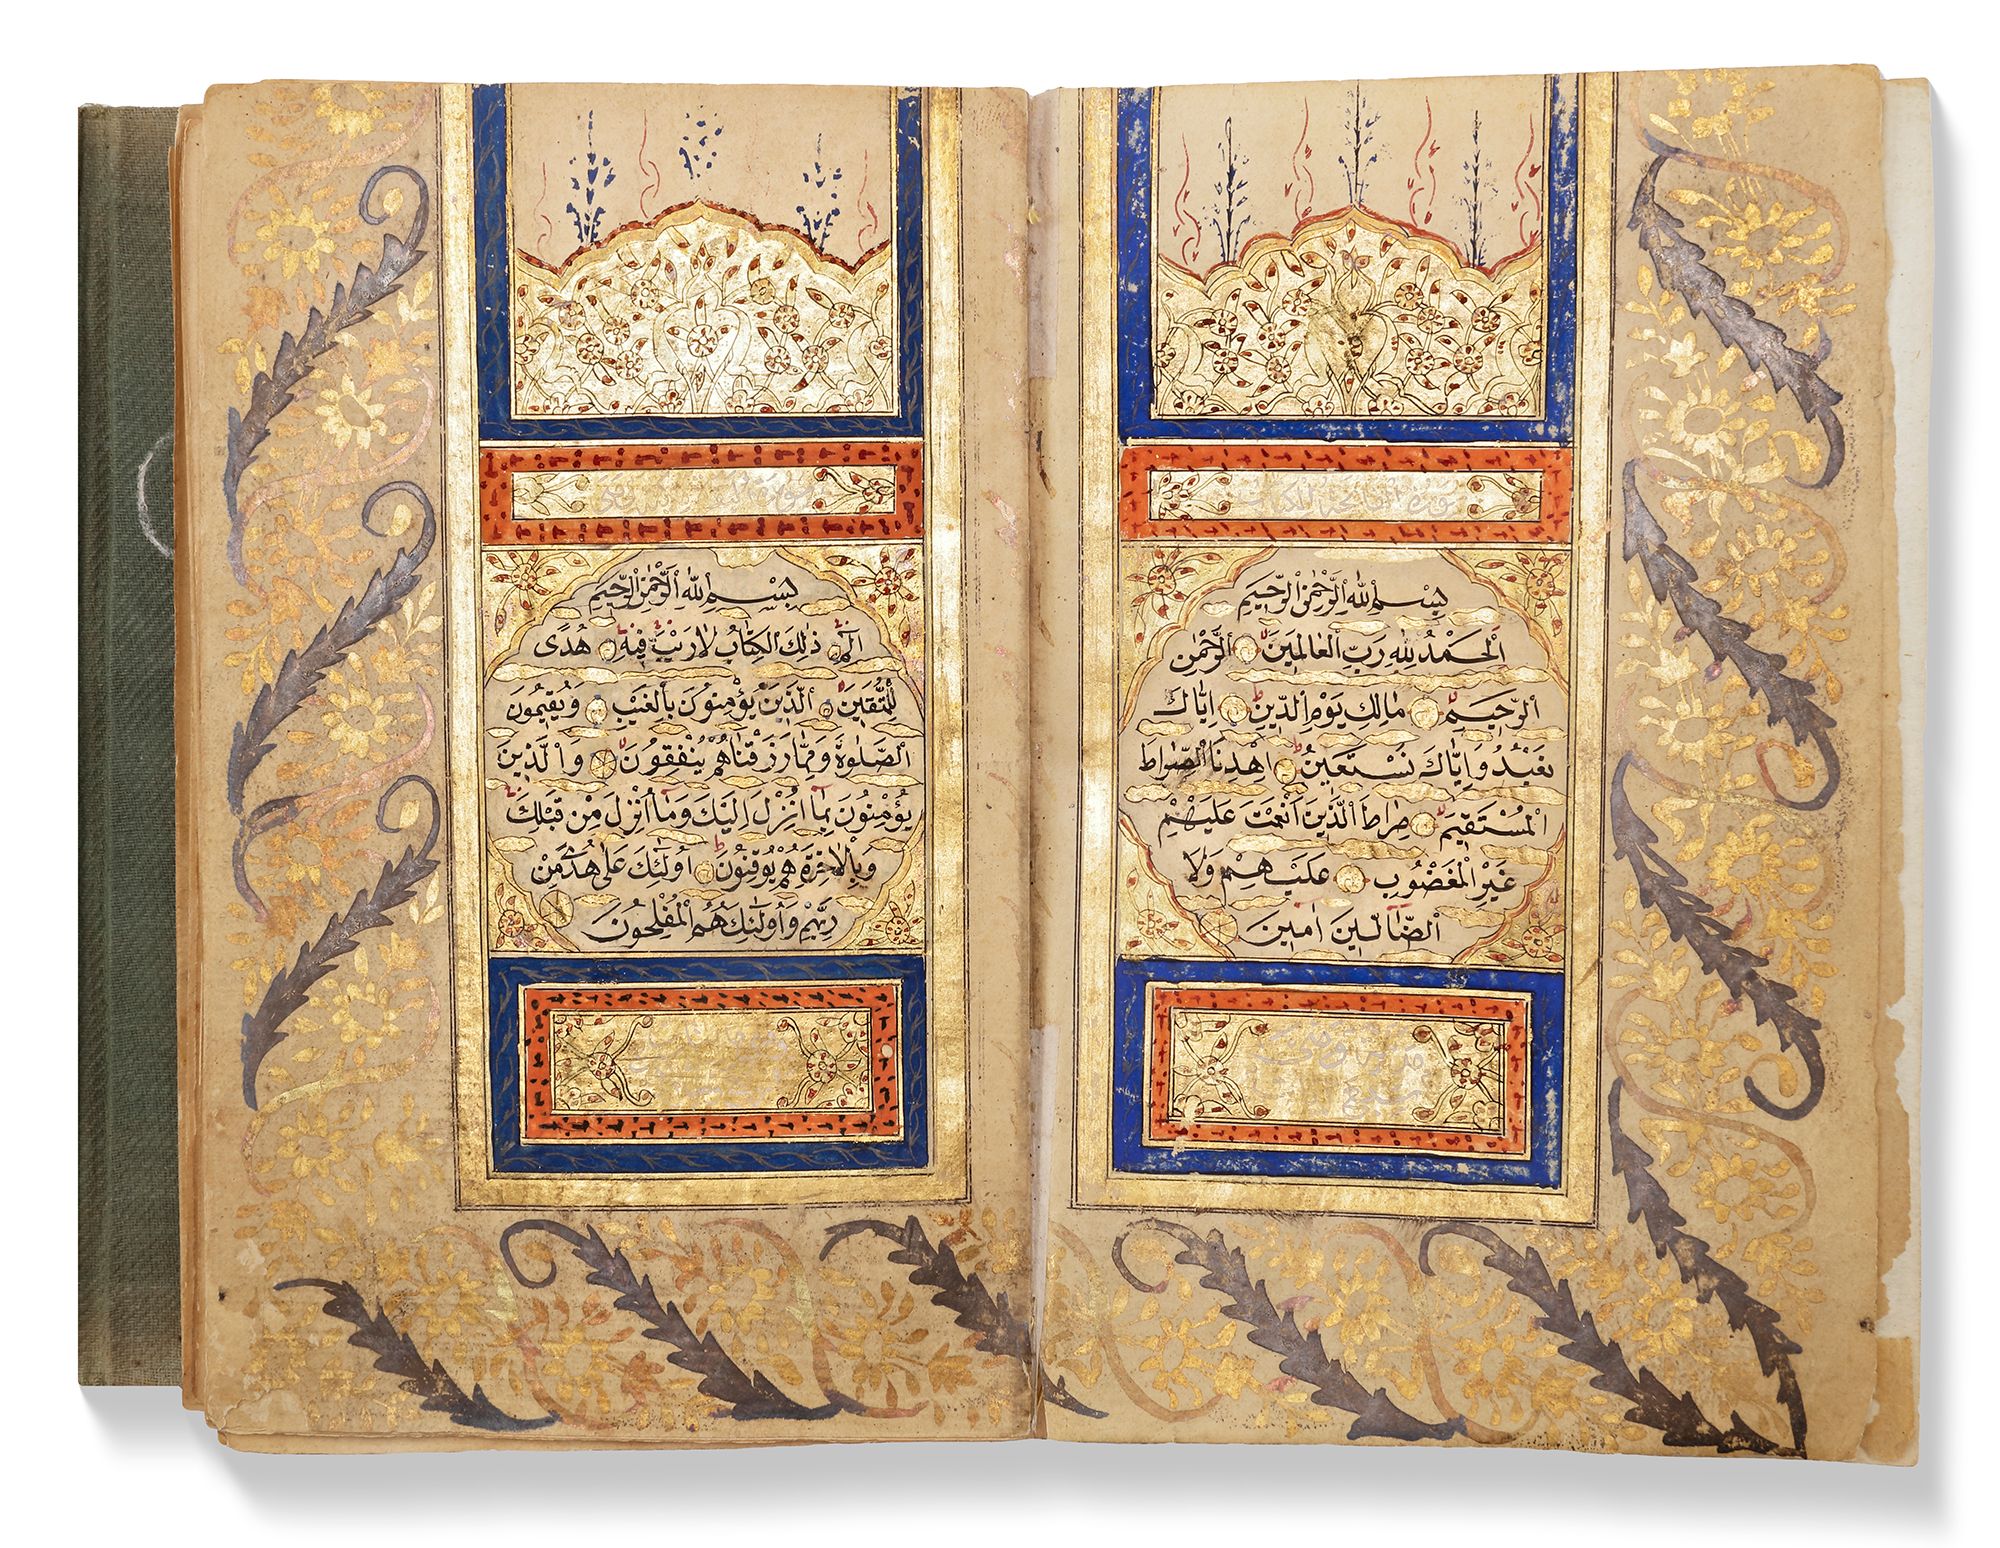 سورة الفاتحة الكتاب
بسم الله الرحمن الرحيم
الحمد لله رب العالمين الرحمن
الرحيم مالك يوم الدين اياك
نعبد واياك نستعين اهدنا الصراط
المستقيم صراط الذين انعمت عليهم
غير المغضوب عليهم ولا
الضالين امين
بِسْمِ اللهِ الرَّحْمٰنِ الرَّحِيمِ
الٓمٓ ذٰلِكَ الْكِتَابُ لَا رَيْبَ فِيهِ هُدًى
لِلْمُتَّقِينَ اَلَّذِينَ يُؤْمِنُونَ بِالْغَيْبِ وَيُقِيمُونَ
الصَّلٰوةَ وَمِمَّا رَزَقْنَاهُمْ يُنْفِقُونَ وَالَّذِينَ
يُؤْمِنُونَ بِمَآ اُنْزِلَ اِلَيْكَ وَمَآ اُنْزِلَ مِنْ قَبْلِكَ
وَبِالْاٰخِرَةِ هُمْ يُوقِنُونَ اُولٰئِكَ عَلٰى هُدًى مِنْ
رَبِّهِمْ وَاُولٰئِكَ هُمُ الْمُفْلِحُونَ